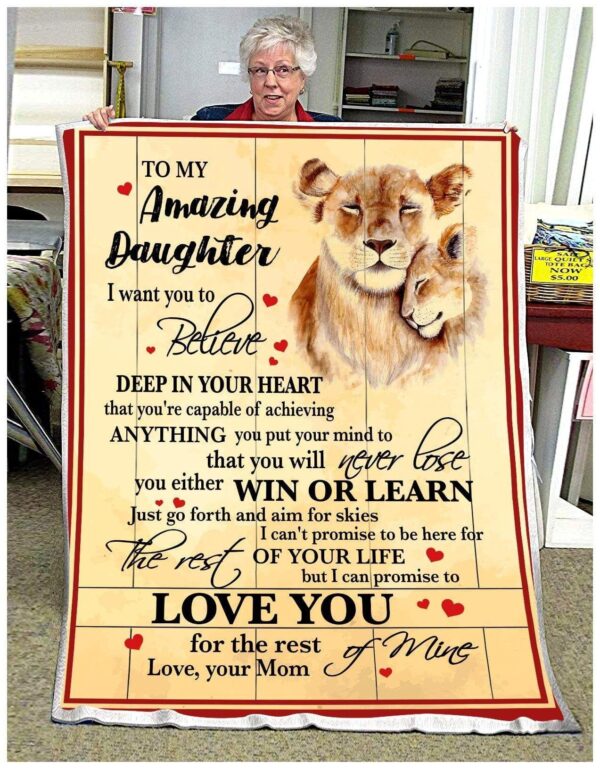 TO MY
Amazing
Daughter
I want you to
Believe
DEEP IN YOUR HEART
that you're capable of achieving
ANYTHING you put your mind to
that you will never lose
you either WIN OR LEARN
Just go forth and aim for skies
I can't promise to be here for
The rest OF YOUR LIFE
but I can promise to
LOVE YOU
for the rest of Mine
Love, your Mom
LARGE QUILT
TOTE BAG
NOW
$5.00